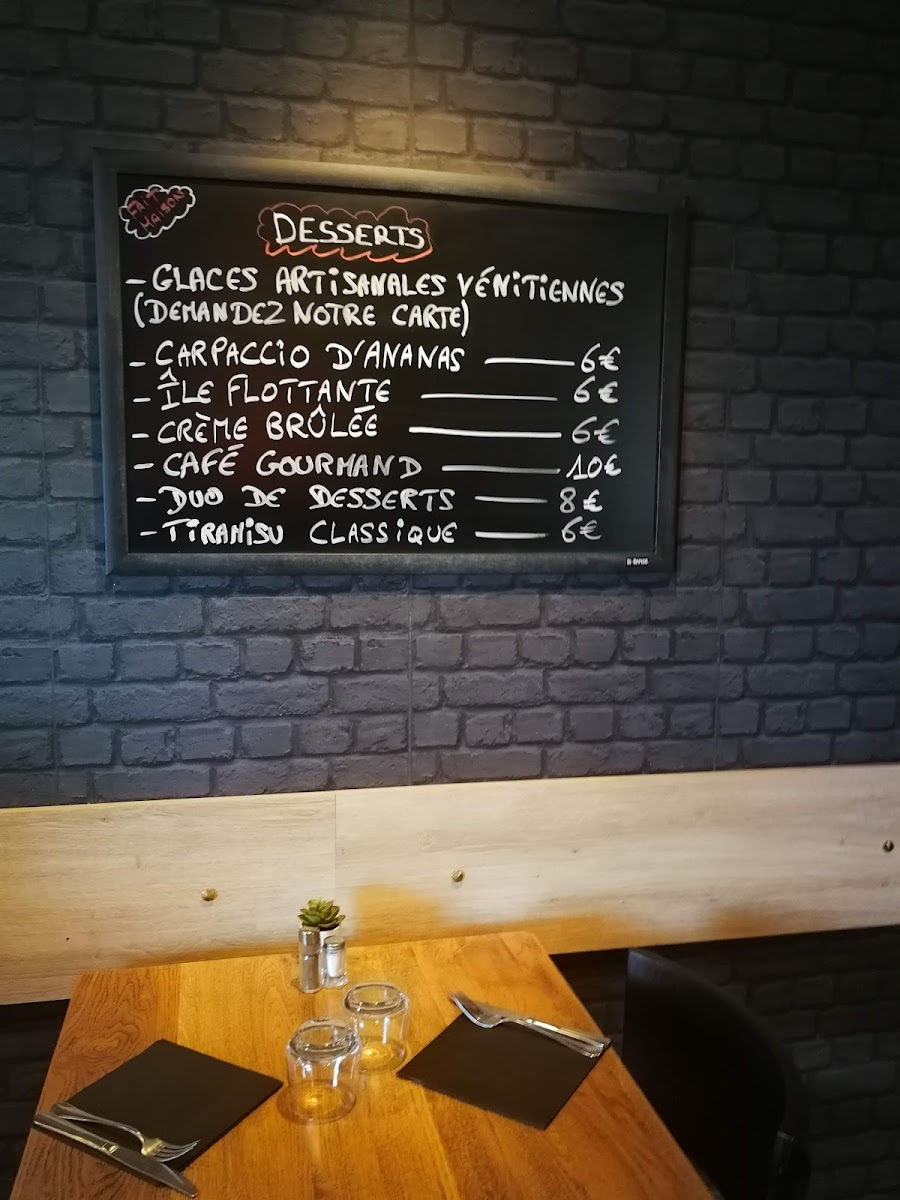 FAIT
MAISON
DESSERTS
- GLACES ARTISANALES VÉNITIENNES
(DEMANDEZ NOTRE CARTE)
- CARPACCIO D'ANANAS — 6€
- ÎLE FLOTTANTE — 6€
- CRÈME BRÛLÉE — 6€
- CAFÉ GOURMAND — 10€
- DUO DE DESSERTS — 8€
- TIRAMISU CLASSIQUE — 6€